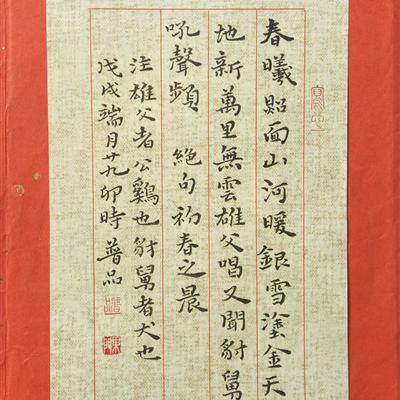 春曦貼面山河暖銀雪塗金天
地新萬里無雲雄父唱又聞豺舅
吼聲頻 絕句初春之晨
注雄父者公鷄也豺舅者犬也
戊戌端月廿九卯時 普品